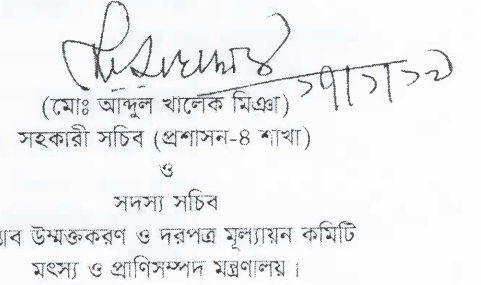 (মোঃ আব্দুল খালেক মিঞা)
সহকারী সচিব (প্রশাসন-৪ শাখা)
ও
সদস্য সচিব
উম্মক্তকরণ ও দরপত্র মূল্যায়ন কমিটি
মৎস্য ও প্রাণিসম্পদ মন্ত্রণালয়।